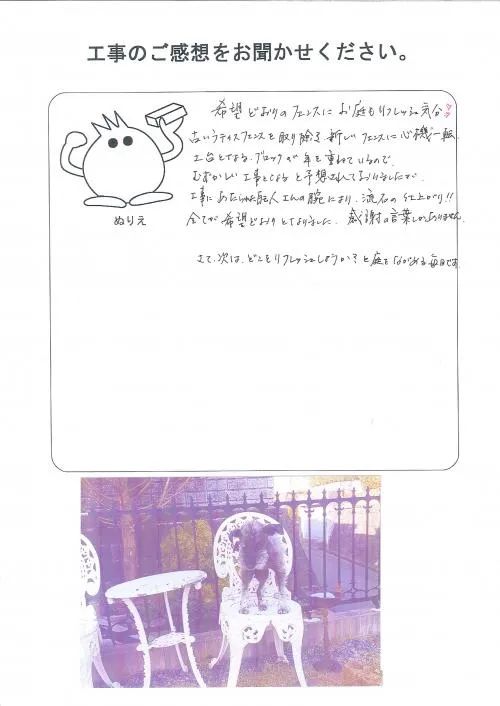 工事のご感想をお聞かせください。
希望どおりのフェンスに お庭もリフレッシュ気分
古いラティスフェンスを取り除き、新しいフェンスに心機一転、
土台となるブロックが年を重ねているので、
むずかしい工事となると予想されておりましたが、
工事にあたられた職人さんの腕により、流石の仕上がり!!
全てが希望どおりとなりました。感謝の言葉しかありません。
さて、次は、どこをリフレッシュしようか?と庭をながめる毎日です。
ぬりえ